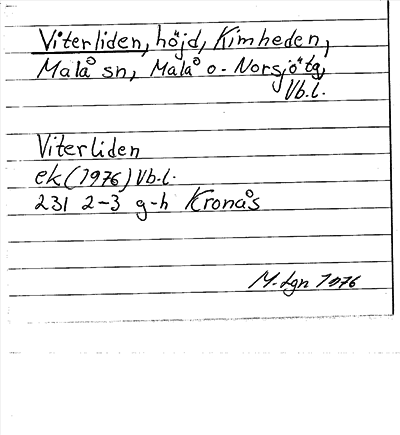 Viterliden, höjd, Kimheden,
Malå sn, Malå o. Norsjö tg,
Vb.l.
Viterliden
ek (1976) Vb.l.
231 2-3 g-h Kronås
M. Lgn 1976